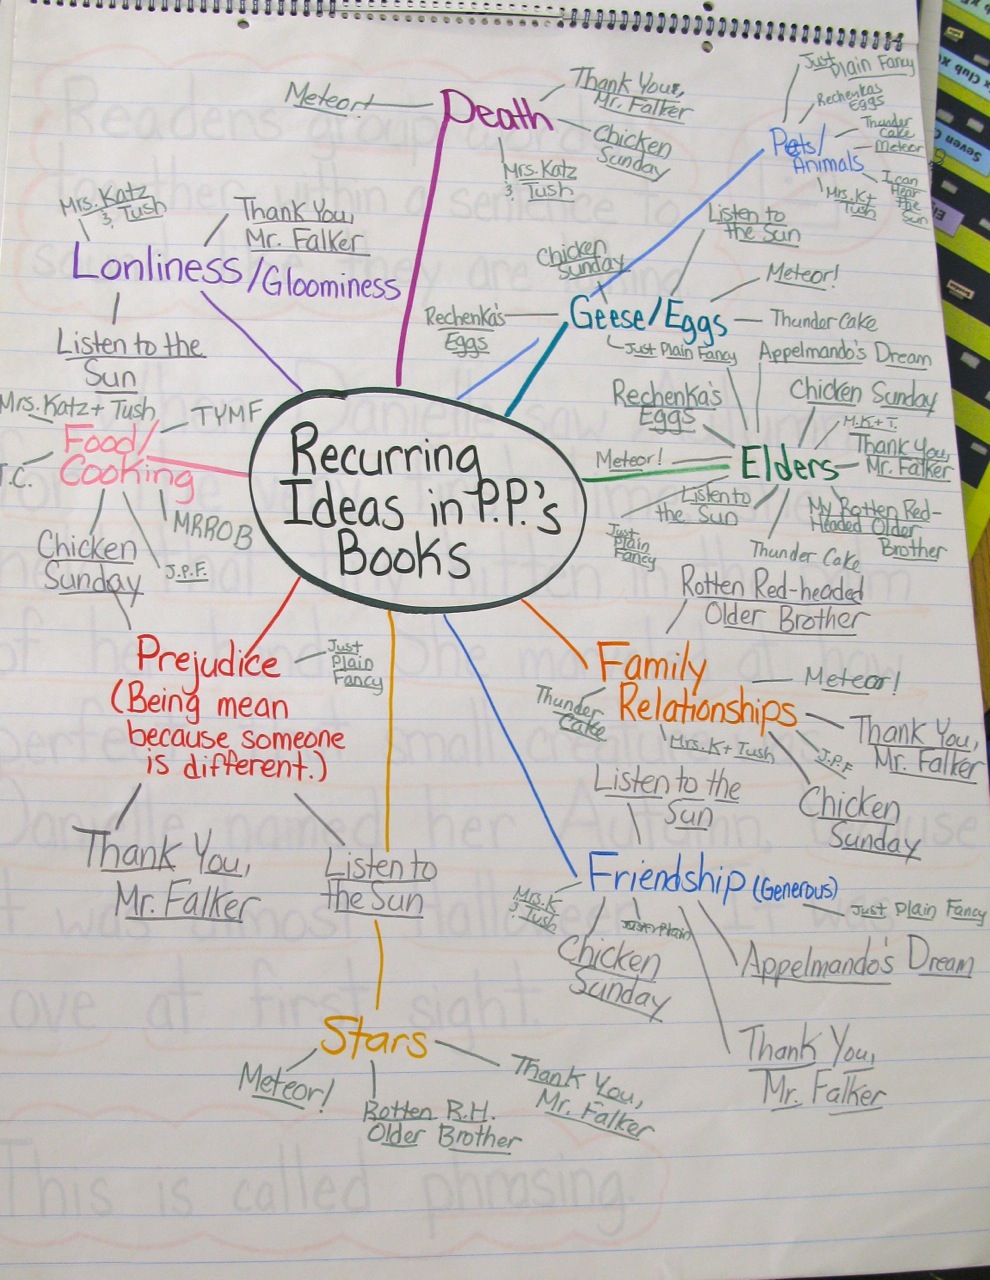 Recurring
Ideas in P.P.'s
Books
Death
Meteor!
Thank You,
Mr. Falker
Chicken
Sunday
Mrs. Katz
& Tush
Pets/
Animals
Just Plain Fancy
Rechenkas
Eggs
Thunder
Cake
Meteor
I can
Hear
the
Sun
Mrs. K+
Tush
Geese/Eggs
Chicken
Sunday
Listen to
the Sun
Meteor!
Thunder Cake
Just Plain Fancy
Rechenka's
Eggs
Elders
Appelmando's Dream
Chicken Sunday
M.K+T.
Thank You,
Mr. Falker
My Rotten Red-
Headed Older
Brother
Thunder Cake
Listen to
the Sun
Just
Plain
Fancy
Meteor!
Rechenka's
Eggs
Family
Relationships
Rotten Red-headed
Older Brother
Meteor!
Thank You,
Mr. Falker
J.P.F
Chicken
Sunday
Mrs. K+ Tush
Thunder
Cake
Friendship (Generous)
Listen to the
Sun
Just Plain Fancy
Appelmando's Dream
Thank You,
Mr. Falker
Just Plain
Chicken
Sunday
Mrs. K
& Tush
Stars
Meteor!
Rotten R.H.
Older Brother
Thank You,
Mr. Falker
Prejudice
(Being mean
because someone
is different.)
Just
Plain
Fancy
Listen to
the Sun
Thank You,
Mr. Falker
Food/
Cooking
Mrs. Katz + Tush
TYMF
T.C.
MRROB
J.P.F.
Chicken
Sunday
Lonliness/Gloominess
Mrs. Katz
& Tush
Thank You,
Mr. Falker
Listen to the
Sun
This is called phrasing.